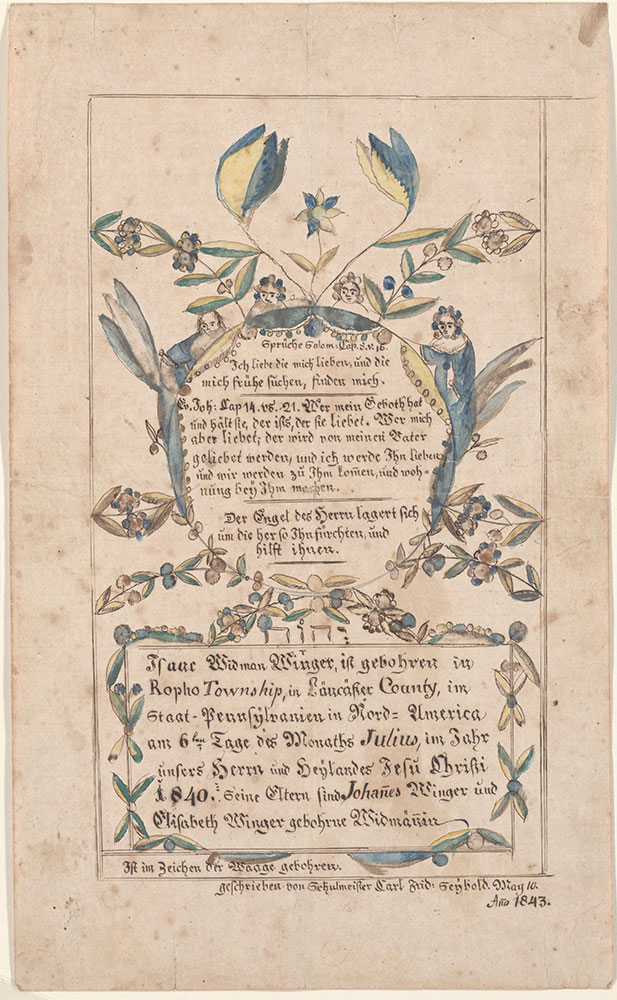 Sprüche Salom: Cap. 8. v. 16.
Ich liebe die mich lieben, und die
mich frühe suchen, finden mich.
Ev. Joh: Cap 14. vs. 21. Wer mein Geboth hat
und hält sie, der ists, der sie liebet. Wer mich
aber liebet; der wird von meinen Vater
geliebet werden, und ich werde Ihn lieben
und wir werden zu Ihm kom̄en, und woh-
nung bey Ihm machen.
Der Engel des Herrn lagert sich
um die her so Ihn fürchten, und
hilft ihnen.
יהוה
Isaac Widman Winger, ist gebohren in
Ropho Township, in Läncäster County, im
Staat-Pennsylvanien in Nord= America
am 6ten Tage des Monaths Julius, im Jahr
unsers Herrn und Heylandes Jesu Christi
1840. Seine Eltern sind Johan̄es Winger und
Elisabeth Winger gebohrne Widmännin
Ist im Zeichen der Waage gebohren.
geschrieben von Schulmeister Carl Frid: Seybold. May 10.
An̄o 1843.